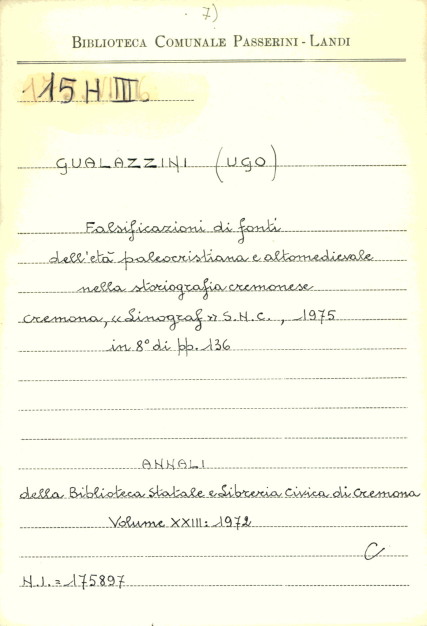 7)
BIBLIOTECA COMUNALE PASSERINI - LANDI
15 H III
GUALAZZINI (UGO)
Falsificazioni di fonti
dell'età paleocristiana e altomedievale
nella storiografia cremonese
Cremona, «Linograf» S.N.C., 1975
in 8° di pp. 136
ANNALI
della Biblioteca Statale e Libreria Civica di Cremona
Volume XXIII: 1972
C
N.I. = 175897